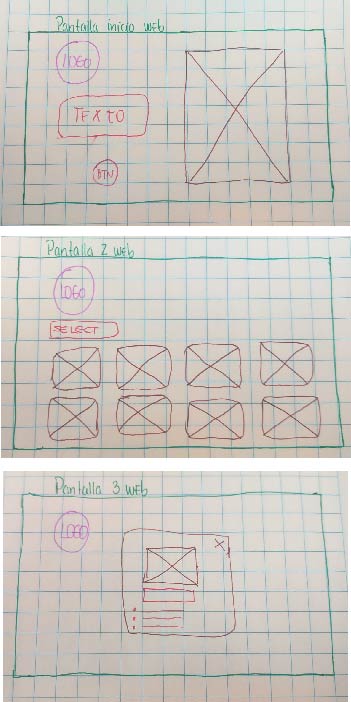 Pantalla inicio web
LOGO
TEXTO
BTN
Pantalla 2 web
LOGO
SELECT
Pantalla 3 web
LOGO
X